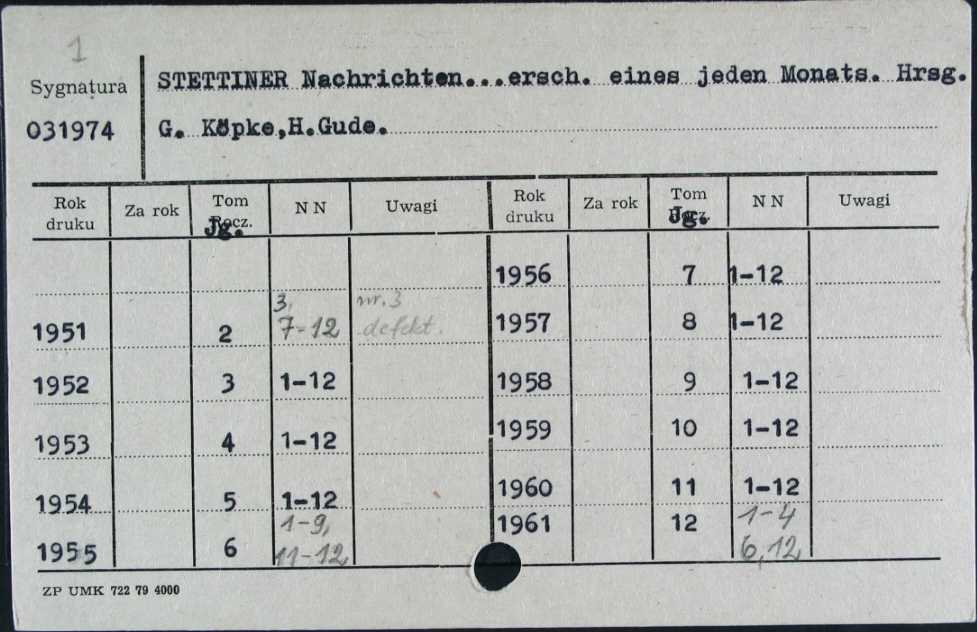 1
Sygnatura
STETTINER Nachrichten...ersch. eines jeden Monats. Hrsg.
031974
G. Köpke,H.Gude.
Rok druku Za rok Tom Rocz. Jg. NN Uwagi Rok druku Za rok Tom Rocz. Jg. NN Uwagi
1956 7 1-12
1951 2 3, 7-12 nr. 3 defekt. 1957 8 1-12
1952 3 1-12 1958 9 1-12
1953 4 1-12 1959 10 1-12
1954 5 1-12 1960 11 1-12
1955 6 1-9, 11-12 1961 12 1-4 6,12
ZP UMK 722 79 4000